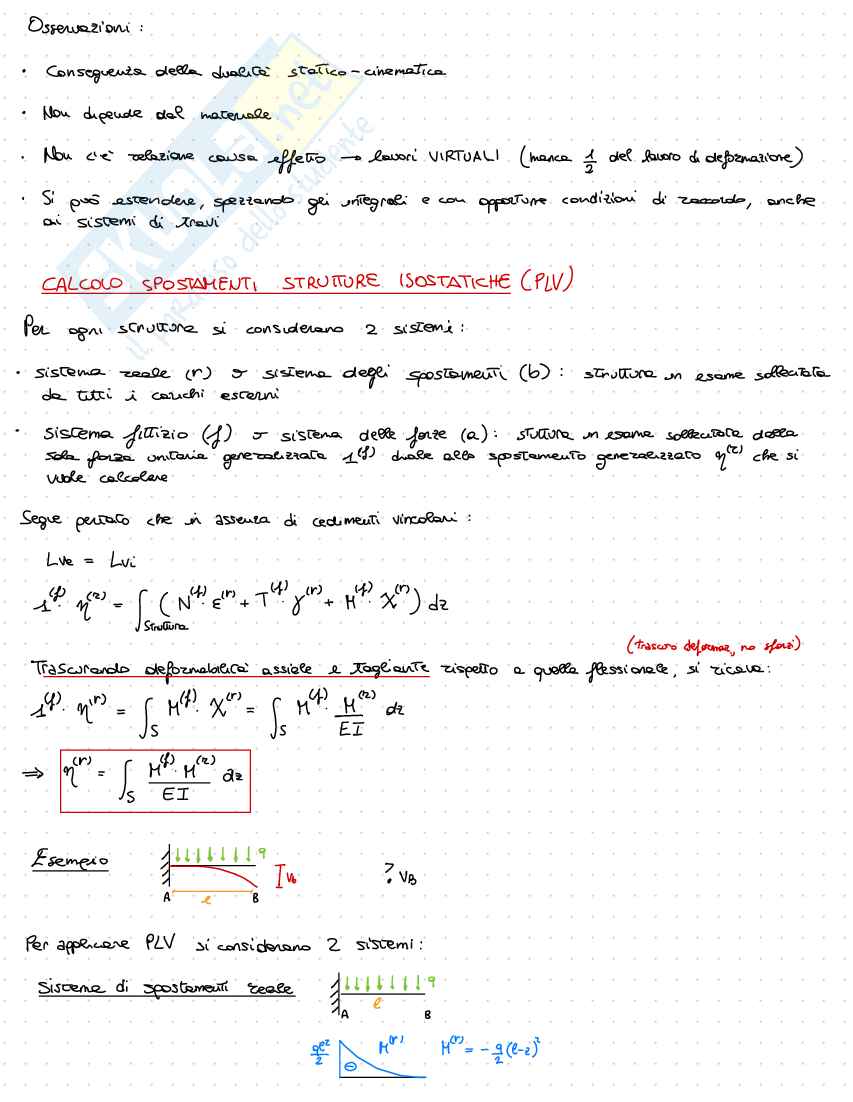 Osservazioni :
· Conseguenza della dualità statico-cinematica
· Non dipende dal materiale
· Non c'è relazione causa effetto → lavori VIRTUALI (manca 1/2 del lavoro di deformazione)
· Si può estendere, spezzando gli integrali e con opportune condizioni di raccordo, anche
ai sistemi di travi
CALCOLO SPOSTAMENTI STRUTTURE ISOSTATICHE (PLV)
Per ogni struttura si considerano 2 sistemi :
· sistema reale (r) o sistema degli spostamenti (b) : struttura in esame sollecitata
da tutti i carichi esterni
· sistema fittizio (f) o sistema delle forze (a) : stuttura in esame sollecitata dalla
sola forza unitaria generalizzata 1^(f) duale allo spostamento generalizzato η^(r) che si
vuole calcolare
Segue pertato che in assenza di cedimenti vincolari :
Lve = Lvi
1^(f) · η^(r) = ∫_Struttura ( N^(f) · ε^(r) + T^(f) · γ^(r) + M^(f) · χ^(r) ) dz
(trascuro deformaz, no sforzi)
Trascurando deformabilità assiale e tagliante rispetto a quella flessionale, si ricava :
1^(f) · η^(r) = ∫_S M^(f) · χ^(r) = ∫_S M^(f) · M^(r)/EI dz
⇒ η^(r) = ∫_S M^(f) · M^(r)/EI dz
Esempio q VB ? VB
A l B
Per applicare PLV si considerano 2 sistemi :
Sistema di spostamenti reale q
A l B
ql²/2 ⊖ M^(r) M^(r) = - q/2 (l-z)²
EKUIUSI.net
il paradiso dello studente